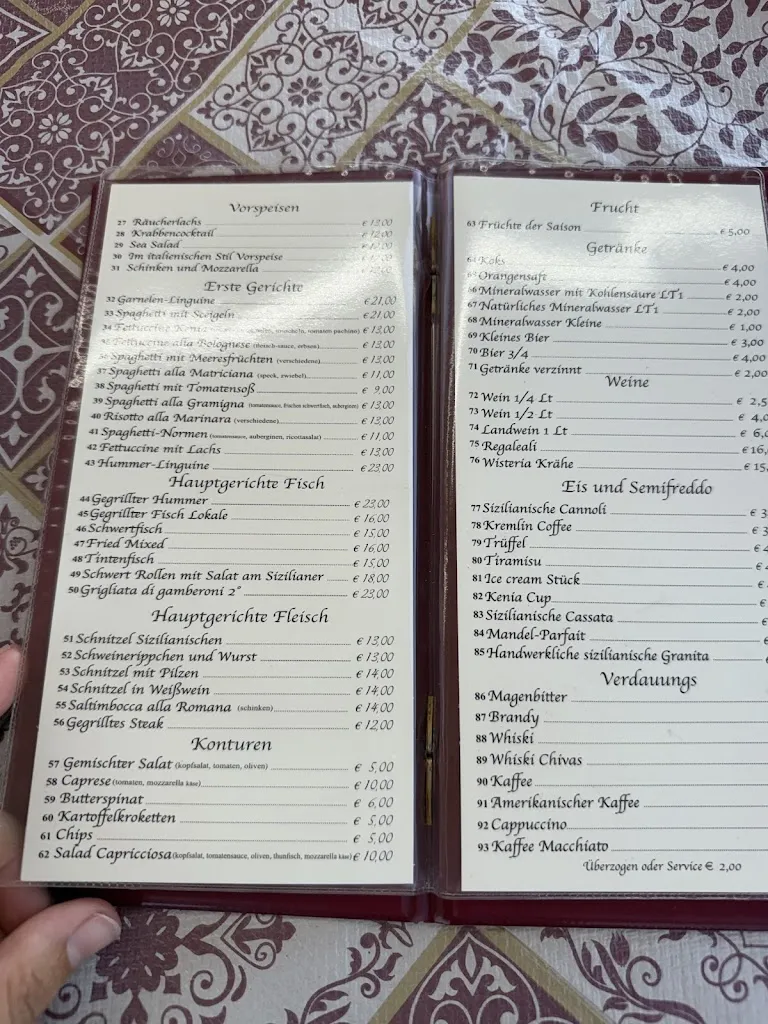 Vorspeisen
27 Räucherlachs € 12,00
28 Krabbencocktail € 12,00
29 Sea Salad
30 Im italienischen Stil Vorspeise
31 Schinken und Mozzarella
Erste Gerichte
32 Garnelen-Linguine € 21,00
33 Spaghetti mit Sceigeln € 21,00
34 Fettuccine € 13,00
Fettuccine alla Bolognese (fleisch-sauce, erbsen) € 13,00
Spaghetti mit Meeresfrüchten (verschiedene) € 13,00
37 Spaghetti alla Matriciana (speck, zwiebel) € 11,00
38 Spaghetti mit Tomatensoß € 9,00
39 Spaghetti alla Gramigna € 13,00
40 Risotto alla Marinara (verschiedene) € 13,00
41 Spaghetti-Normen (tomatensauce, auberginen, ricottasalat) € 11,00
42 Fettuccine mit Lachs € 13,00
43 Hummer-Linguine € 23,00
Hauptgerichte Fisch
44 Gegrillter Hummer € 23,00
45 Gegrillter Fisch Lokale € 16,00
46 Schwertfisch € 15,00
47 Fried Mixed € 16,00
48 Tintenfisch € 15,00
49 Schwert Rollen mit Salat am Sizilianer € 18,00
50 Grigliata di gamberoni 2° € 23,00
Hauptgerichte Fleisch
51 Schnitzel Sizilianischen € 13,00
52 Schweinerippchen und Wurst € 13,00
53 Schnitzel mit Pilzen € 14,00
54 Schnitzel in Weißwein € 14,00
55 Saltimbocca alla Romana (schinken) € 14,00
56 Gegrilltes Steak € 12,00
Konturen
57 Gemischter Salat (kopfsalat, tomaten, oliven) € 5,00
58 Caprese (tomaten, mozzarella käse) € 10,00
59 Butterspinat € 6,00
60 Kartoffelkroketten € 5,00
61 Chips € 5,00
62 Salad Capricciosa (kopfsalat, tomatensauce, oliven, thunfisch, mozzarella käse) € 10,00
Frucht
63 Früchte der Saison € 5,00
Getränke
64 Koks € 4,00
Orangensaft € 4,00
66 Mineralwasser mit Kohlensäure LT1 € 2,00
67 Natürliches Mineralwasser LT1 € 2,00
68 Mineralwasser Kleine € 1,00
69 Kleines Bier € 3,00
70 Bier 3/4 € 4,00
71 Getränke verzinnt € 2,00
Weine
72 Wein 1/4 Lt € 2,5
73 Wein 1/2 Lt € 4,0
74 Landwein 1 Lt € 6,
75 Regaleali € 16,
76 Wisteria Krähe € 15,
Eis und Semifreddo
77 Sizilianische Cannoli € 3
78 Kremlin Coffee € 3
79 Trüffel € 4
80 Tiramisu €
81 Ice cream Stück €
82 Kenia Cup €
83 Sizilianische Cassata €
84 Mandel-Parfait €
85 Handwerkliche sizilianische Granita €
Verdauungs
86 Magenbitter
87 Brandy
88 Whiski
89 Whiski Chivas
90 Kaffee
91 Amerikanischer Kaffee
92 Cappuccino
93 Kaffee Macchiato
Überzogen oder Service € 2,00